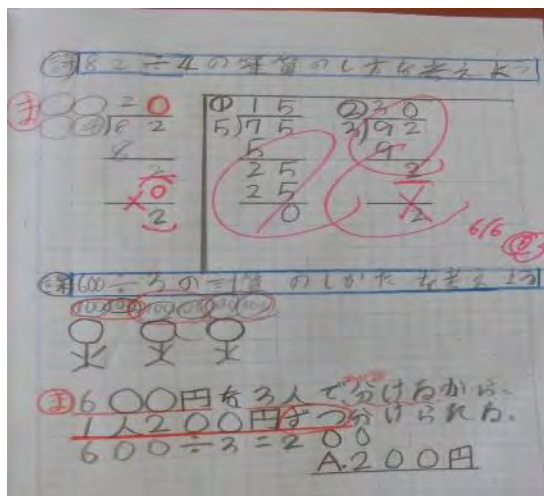 82÷4の筆算のしかたを考えよう
ま
20
4)82
8
2
0
2
① 15
5)75
5
25
25
0
② 30
3)92
9
2
2
6/6
600÷3の計算のしかたを考えよう
100 100 100 100 100 100
ま 600円を3人で分けるから、
1人200円ずつ分けられる。
600÷3=200
A.200円